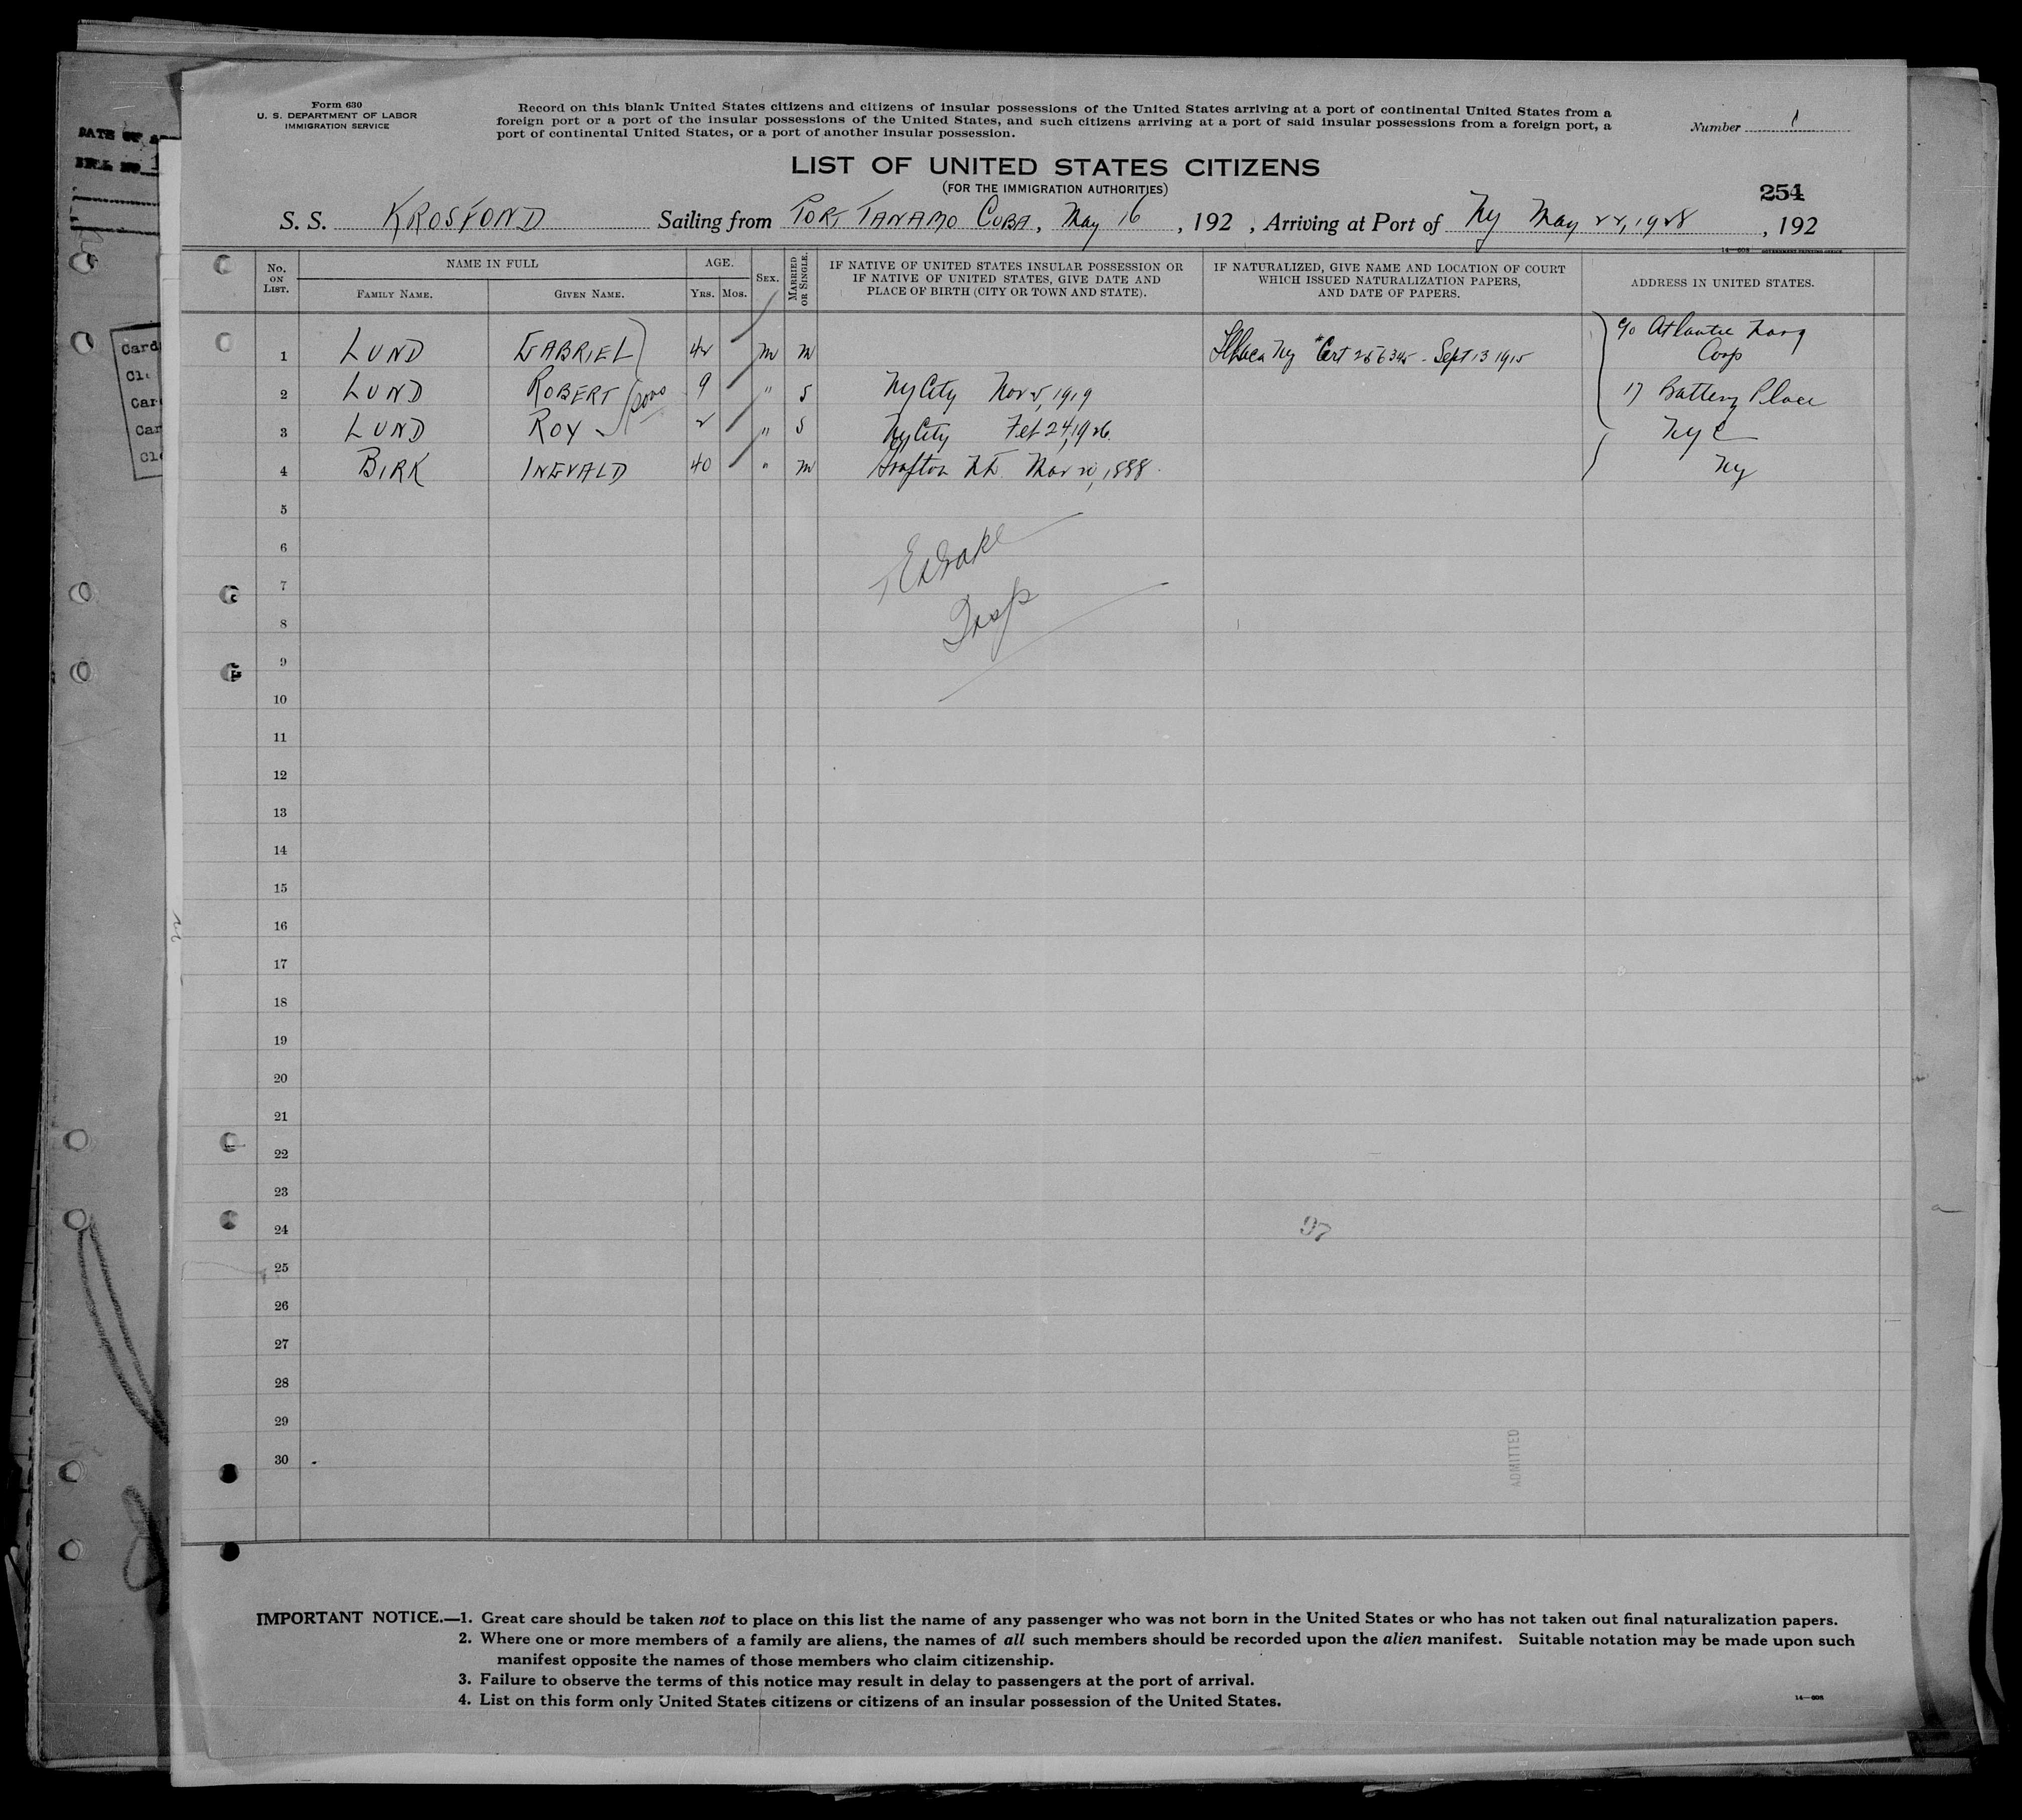 Form 630
U. S. DEPARTMENT OF LABOR
IMMIGRATION SERVICE
Record on this blank United States citizens and citizens of insular possessions of the United States arriving at a port of continental United States from a
foreign port or a port of the insular possessions of the United States, and such citizens arriving at a port of said insular possessions from a foreign port, a
port of continental United States, or a port of another insular possession.
Number 1
LIST OF UNITED STATES CITIZENS
(FOR THE IMMIGRATION AUTHORITIES)
254
S. S. KROSFOND Sailing from PORT TANAMO CUBA, May 16, 192 , Arriving at Port of NY May 22, 1928, 192
14—608 GOVERNMENT PRINTING OFFICE
No. ON LIST. NAME IN FULL AGE. SEX. MARRIED OR SINGLE. IF NATIVE OF UNITED STATES INSULAR POSSESSION OR IF NATIVE OF UNITED STATES, GIVE DATE AND PLACE OF BIRTH (CITY OR TOWN AND STATE). IF NATURALIZED, GIVE NAME AND LOCATION OF COURT WHICH ISSUED NATURALIZATION PAPERS, AND DATE OF PAPERS. ADDRESS IN UNITED STATES.
FAMILY NAME. GIVEN NAME. YRS. MOS.
1 LUND GABRIEL 42 m m Ithaca NY Cert 256345 - Sept 13 1915 c/o Atlantic Navg Corp
2 LUND ROBERT sons 9 " S NY City Nov 5, 1919 17 Battery Place
3 LUND ROY 2 " S NY City Feb 24, 1926. NYC
4 BIRK INGVALD 40 " m Grafton N.D. Mar 1888. NY
5
6
7
8
Insp
9
10
11
12
13
14
15
16
17
18
19
20
21
22
23
24
97
25
26
27
28
29
30
ADMITTED
IMPORTANT NOTICE.—1. Great care should be taken not to place on this list the name of any passenger who was not born in the United States or who has not taken out final naturalization papers.
2. Where one or more members of a family are aliens, the names of all such members should be recorded upon the alien manifest. Suitable notation may be made upon such
manifest opposite the names of those members who claim citizenship.
3. Failure to observe the terms of this notice may result in delay to passengers at the port of arrival.
4. List on this form only United States citizens or citizens of an insular possession of the United States.
14—608